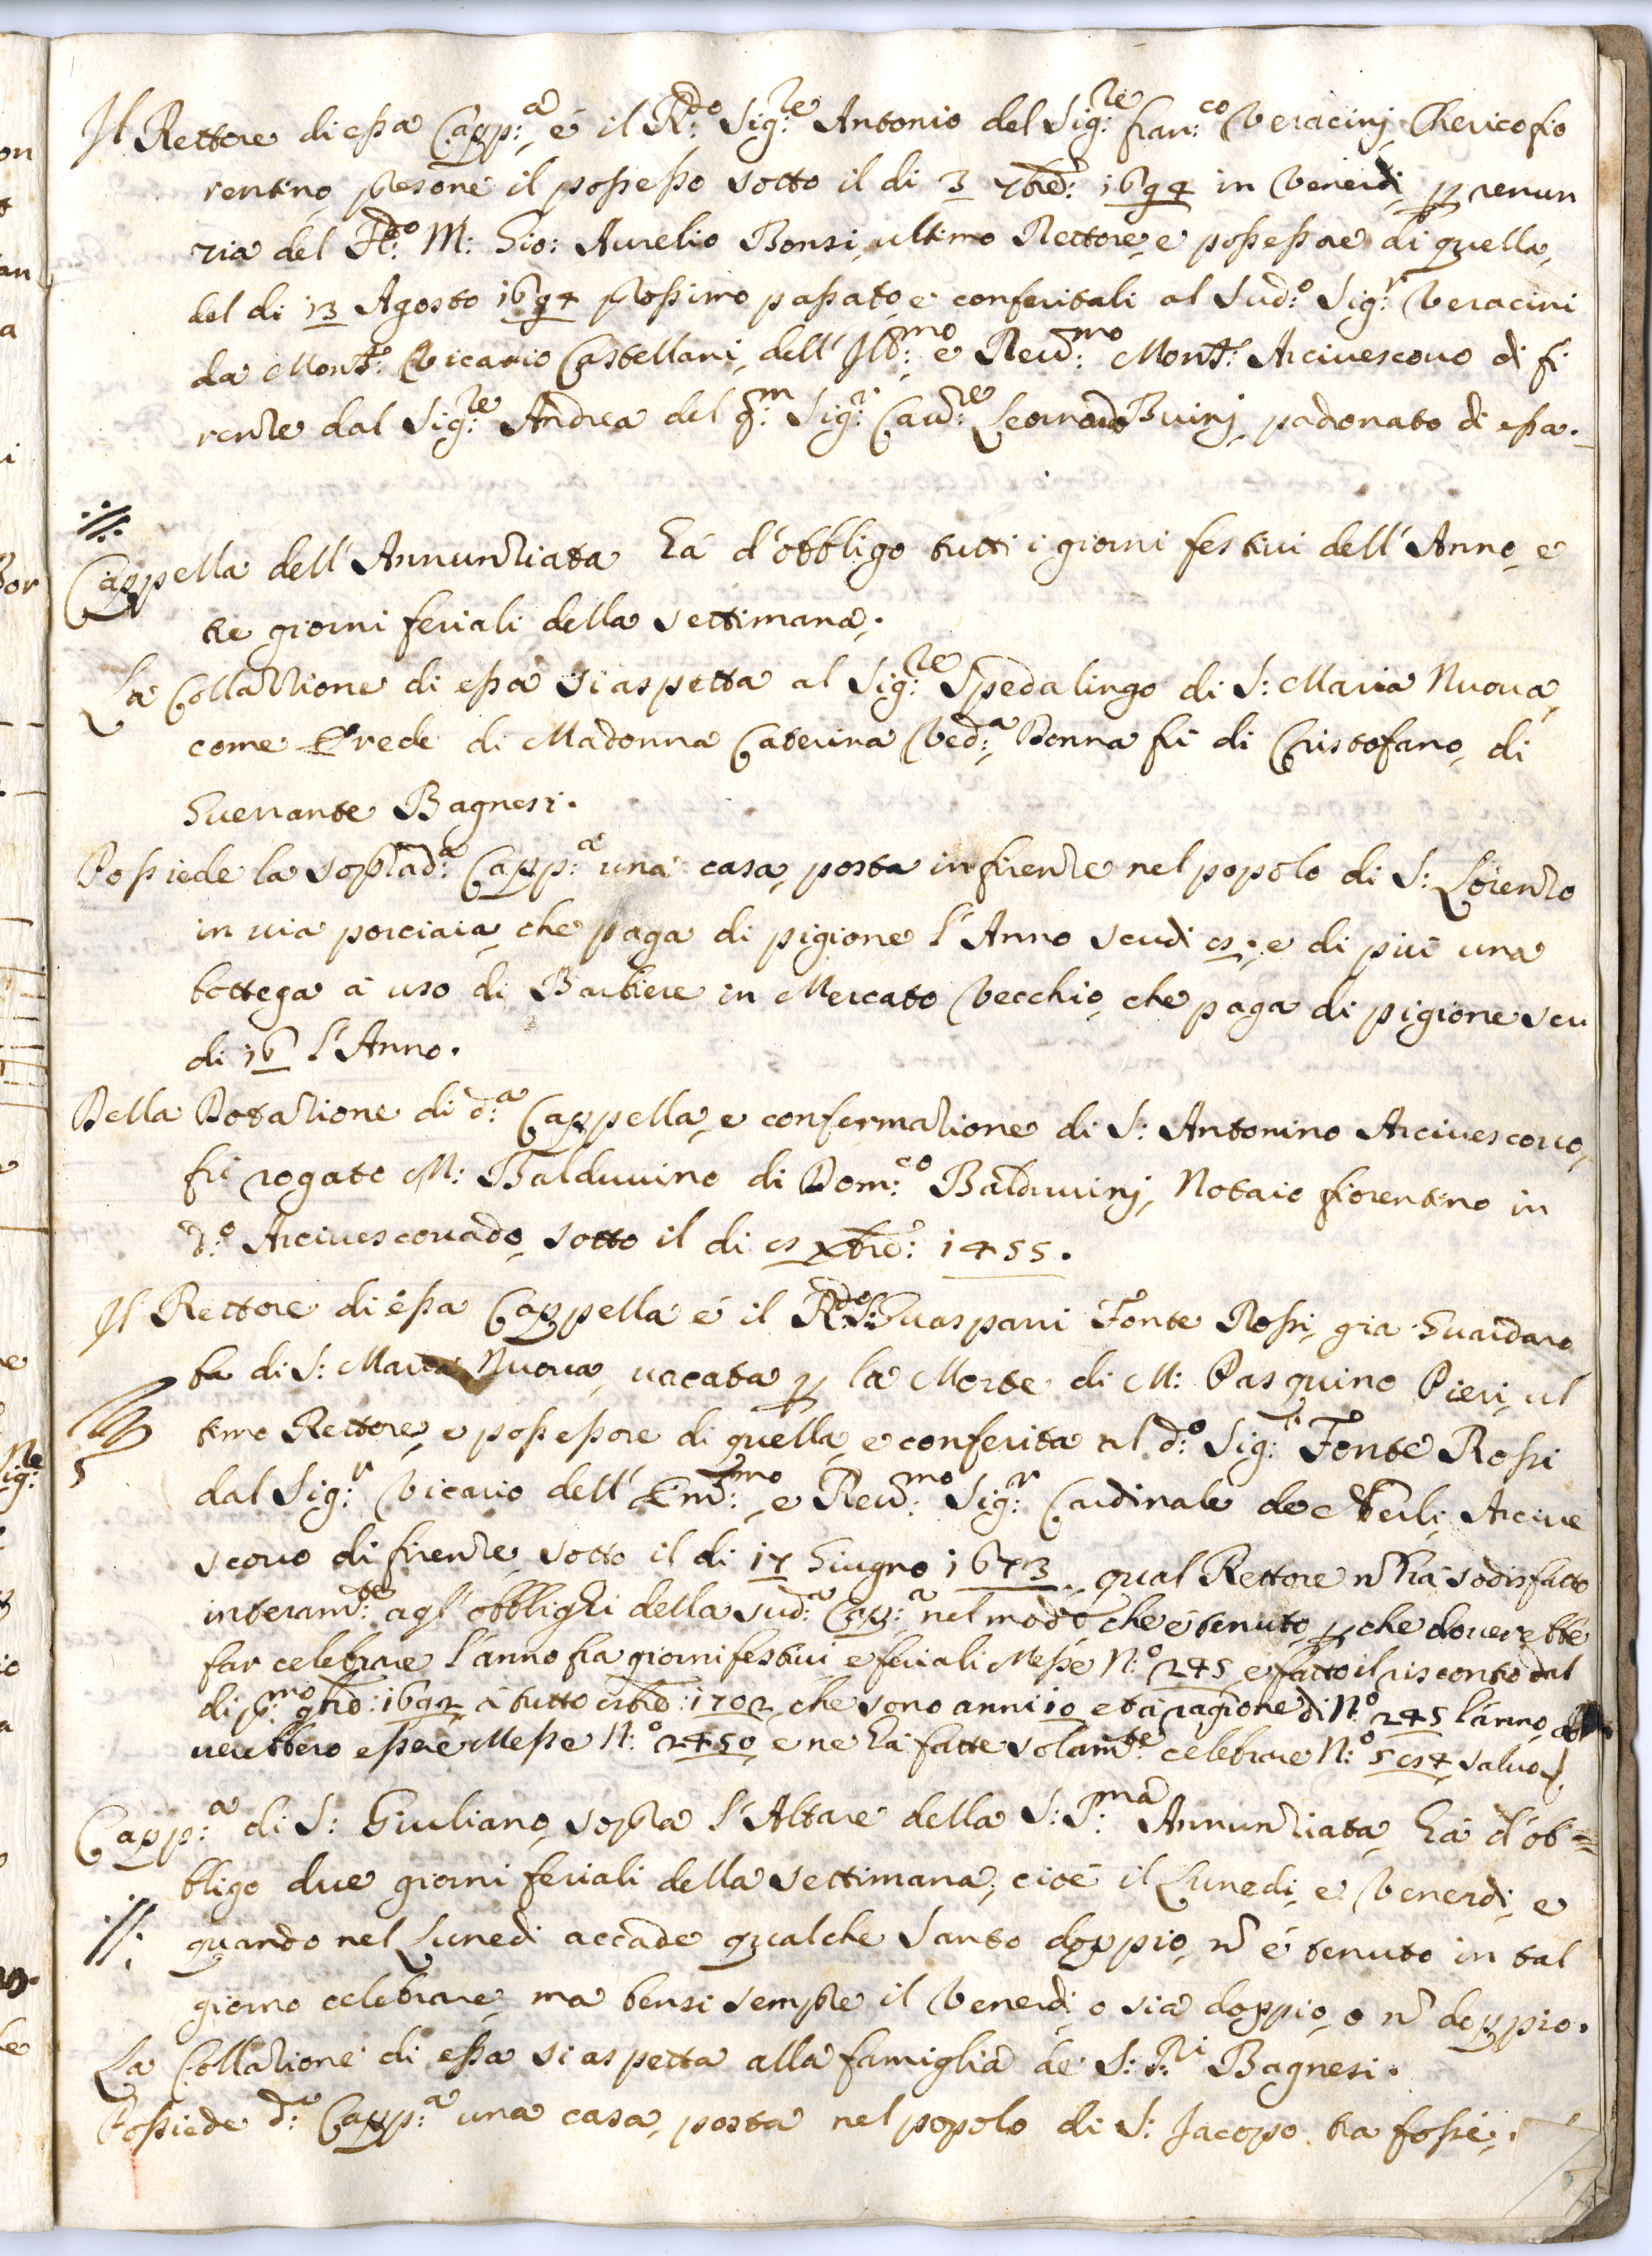 Il Rettore di essa Capp:a é il R:do Sig:re Antonio del Sig:re fran:co Veracinj Cherico fio
rentino, presone il possesso sotto il di 3 7bre: 1694 in Venerdi, p renun
zia del R:do M: Gio: Aurelio Bonsi, ultimo Rettore, e possessore di quella,
del di 13 Agosto 1694 prossimo passato, e conferitali al Sud:o Sig:r Veracini
da Mons:r Vicario Castellani, dell' Ill:mo e Reu:mo Mons:r Arciuescouo di fi
renze dal Sig:re Andrea del q:m Sig:r Cau:re Leonardo Buinj, padronato di essa.
Cappella dell' Annunziata há d'obbligo tutti i giorni festiui dell' Anno, e
tre giorni feriali della settimana.
La Collazzione di essa si aspetta al Sig:re Spedalingo di S: Maria Nuoua,
come Erede di Madonna Caterina Ved:a Donna fú di Cristofano, di
Guerrante Bagnesi.
Possiede la soprad:a Capp:a una casa, posta in firenze nel popolo di S: Lorenzo
in uia porciaia, che paga di pigione l'Anno scudi 15: e di piú una
bottega á uso di Barbiere in Mercato Vecchio, che paga di pigione scu
di 16 l'Anno.
Della Dotazione di d:a Cappella, e confermazione di S: Antonino Arciuescouo,
fú rogato M: Balduuino di Dom:co Balduuinj, Notaio fiorentino in
d:o Arciuescouado, sotto il di 15 Xbre: 1455.
Il Rettore di essa Cappella é il R:do S: Guaspari Fonte Rossi, gia Guardaro
ba di S: Maria Nuoua, uacata p la Morte di M: Pasquino Pieri, ul
timo Rettore, e possessore di quella, e conferita al d:o Sig:r Fonte Rossi
dal Sig:r Vicario dell' Em:mo, e Reu:mo Sig:r Cardinale de Nerli, Arciue
scouo di firenze, sotto il di 17 Giugno 1673, qual Rettore nō há sodisfatto
interam:te agl' obblighi della sud:a Cap:a nel modo che é tenuto, p che douerebbe
far celebrare l'anno fra giorni festiui e feriali Messe N:o 245 e fatto il riscontro dal
di p:mo 9bre: 1692 á tutto 8bre: 1702 che sono anni 10 et á ragione di N:o 245 l'anno,
uerebbero essere Messe N:o 2450, e ne há fatte solam:te celebrare N:o 5154, saluo
Capp:a di S: Giuliano, sopra l'Altare della S:S:ma Annunziata há d'ob=
bligo due giorni feriali della settimana, cioé il Lunedi, e Venerdi, e
quando nel Lunedi accade qualche Santo doppio, nō é tenuto in tal
giorno celebrare, ma bensi sempre il Venerdi, o sia doppio, o nō doppio.
La Collazione di essa si aspetta alla famiglia de' S:R:ri Bagnesi.
Possiede d:a Capp:a una casa, posta nel popolo di S: Jacopo tra fossi,